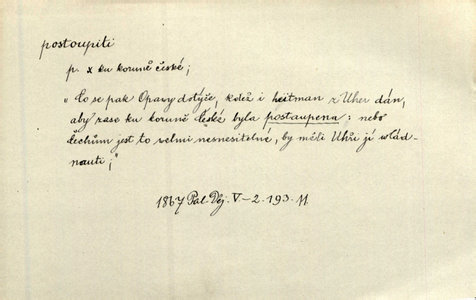 postoupiti
p. x ku koruně české;
„Co se pak Opavy dotýče, kdež i heitman z Uher dán,
aby zase ku koruně české byla postaupena: nebo
Čechům jest to velmi nesnesitelné, by měli Uhři jí wlád-
nauti;"
1867 Pal. Děj. V-2. 193.